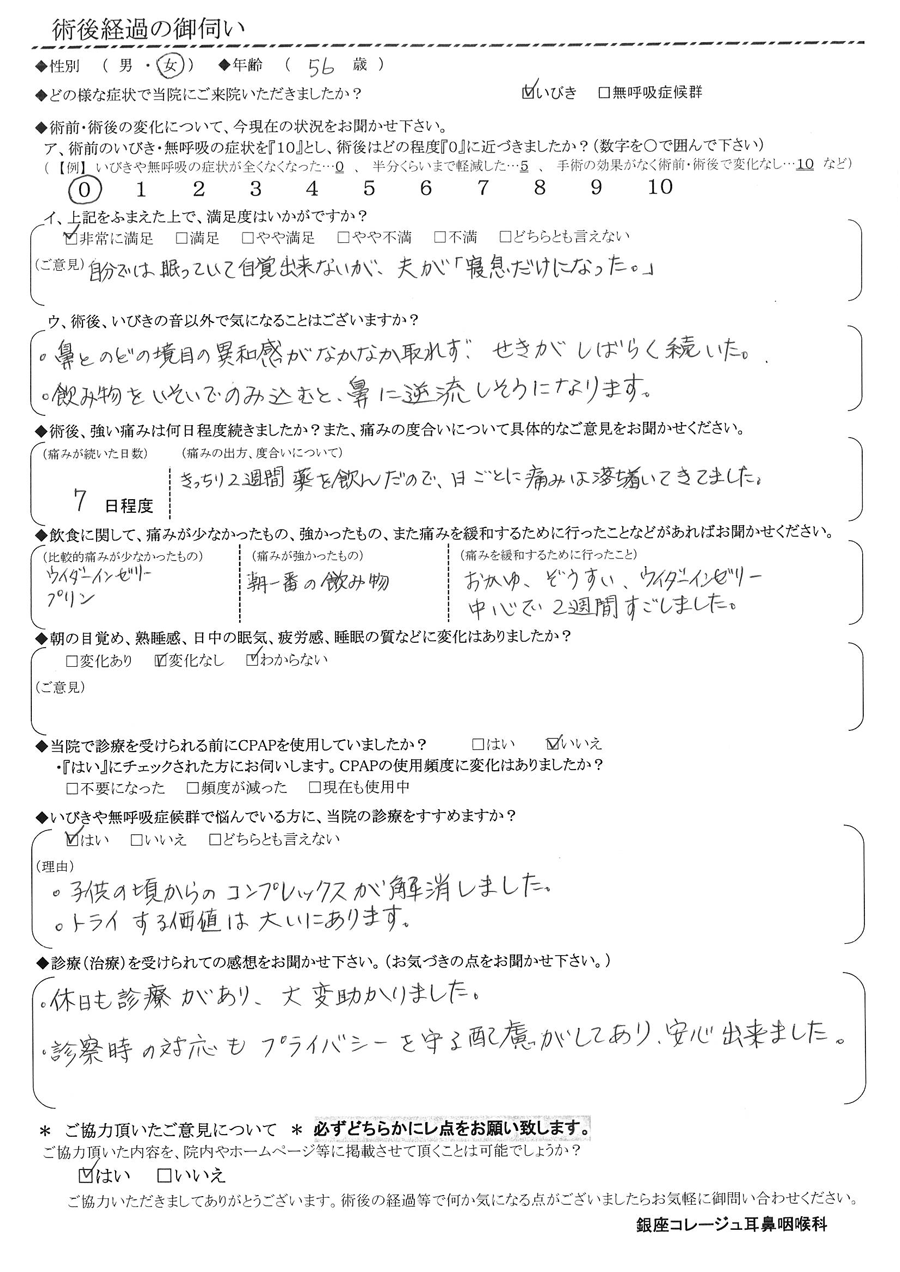 術後経過の御伺い
◆性別 ( 男 ・ 女 ) ◆年齢 ( 56 歳 )
◆どの様な症状で当院にご来院いただきましたか? ☑いびき □無呼吸症候群
◆術前・術後の変化について、今現在の状況をお聞かせ下さい。
ア、術前のいびき・無呼吸の症状を『10』とし、術後はどの程度『0』に近づきましたか?(数字を○で囲んで下さい)
(【例】いびきや無呼吸の症状が全くなくなった…0 、 半分くらいまで軽減した…5 、 手術の効果がなく術前・術後で変化なし…10 など)
0 1 2 3 4 5 6 7 8 9 10
イ、上記をふまえた上で、満足度はいかがですか?
☑非常に満足 □満足 □やや満足 □やや不満 □不満 □どちらとも言えない
(ご意見) 自分では眠っていて自覚出来ないが、夫が「寝息だけになった。」
ウ、術後、いびきの音以外で気になることはございますか?
。鼻とのどの境目の異和感がなかなか取れず、せきがしばらく続いた。
。飲み物をいそいでのみ込むと、鼻に逆流しそうになります。
◆術後、強い痛みは何日程度続きましたか?また、痛みの度合いについて具体的なご意見をお聞かせください。
(痛みが続いた日数) (痛みの出方、度合いについて)
きっちり2週間薬を飲んだので、日ごとに痛みは落ち着いてきてました。
7 日程度
◆飲食に関して、痛みが少なかったもの、強かったもの、また痛みを緩和するために行ったことなどがあればお聞かせください。
(比較的痛みが少なかったもの) (痛みが強かったもの) (痛みを緩和するために行ったこと)
ウイダーインゼリー 朝一番の飲み物 おかゆ、ぞうすい、ウイダーインゼリー
プリン 中心で2週間すごしました。
◆朝の目覚め、熟睡感、日中の眠気、疲労感、睡眠の質などに変化はありましたか?
□変化あり ☑変化なし ☑わからない
(ご意見)
◆当院で診療を受けられる前にCPAPを使用していましたか? □はい ☑いいえ
・『はい』にチェックされた方にお伺いします。CPAPの使用頻度に変化はありましたか?
□不要になった □頻度が減った □現在も使用中
◆いびきや無呼吸症候群で悩んでいる方に、当院の診療をすすめますか?
☑はい □いいえ □どちらとも言えない
(理由)
。子供の頃からのコンプレックスが解消しました。
。トライする価値は大いにあります。
◆診療(治療)を受けられての感想をお聞かせ下さい。(お気づきの点をお聞かせ下さい。)
・休日も診療があり、大変助かりました。
・診察時の対応もプライバシーを守る配慮がしてあり、安心出来ました。
* ご協力頂いたご意見について * 必ずどちらかにレ点をお願い致します。
ご協力頂いた内容を、院内やホームページ等に掲載させて頂くことは可能でしょうか?
☑はい □いいえ
ご協力いただきましてありがとうございます。術後の経過等で何か気になる点がございましたらお気軽に御問い合わせください。
銀座コレージュ耳鼻咽喉科